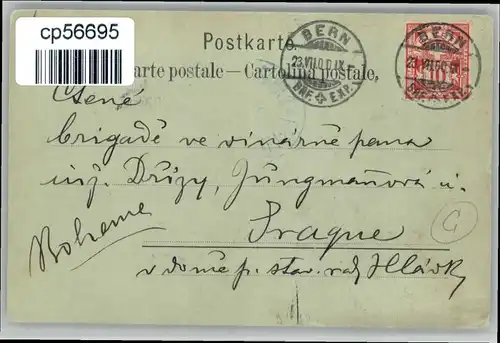 cp56695
Postkarte.
Carte postale — Cartolina postale,
BERN
23.VII.00.IX
BRF. EXP.
BERN
BRF. EXP.
10
Ctené
brigadě ve vinárně pana
inž. Drůzy, Jungmanova u.
Prague
Boheme
v domě p. stav. rady Hlávky